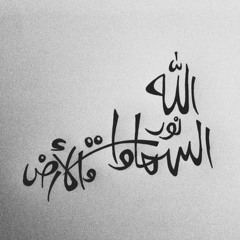 الله
نور
السماوات والأرض